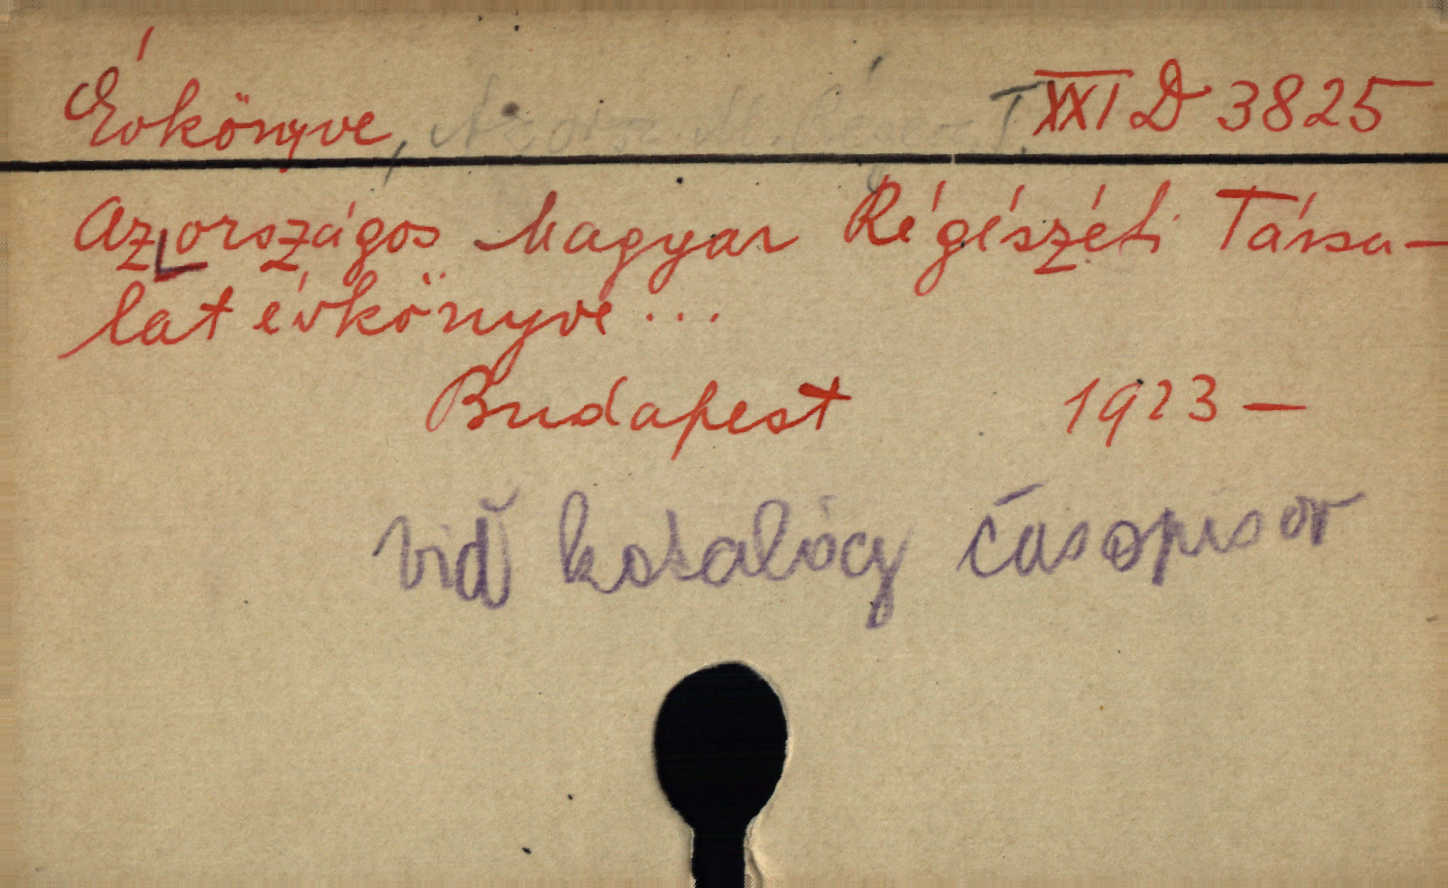 Évkönyve, XXI D 3825
Az országos Magyar Régészéti Társu-
lat évkönyve...
Budapest 1923 –
viď katalócy časopisov